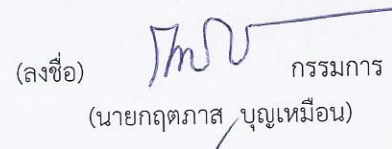 (ลงชื่อ) กรรมการ
(นายกฤตภาส บุญเหมือน)